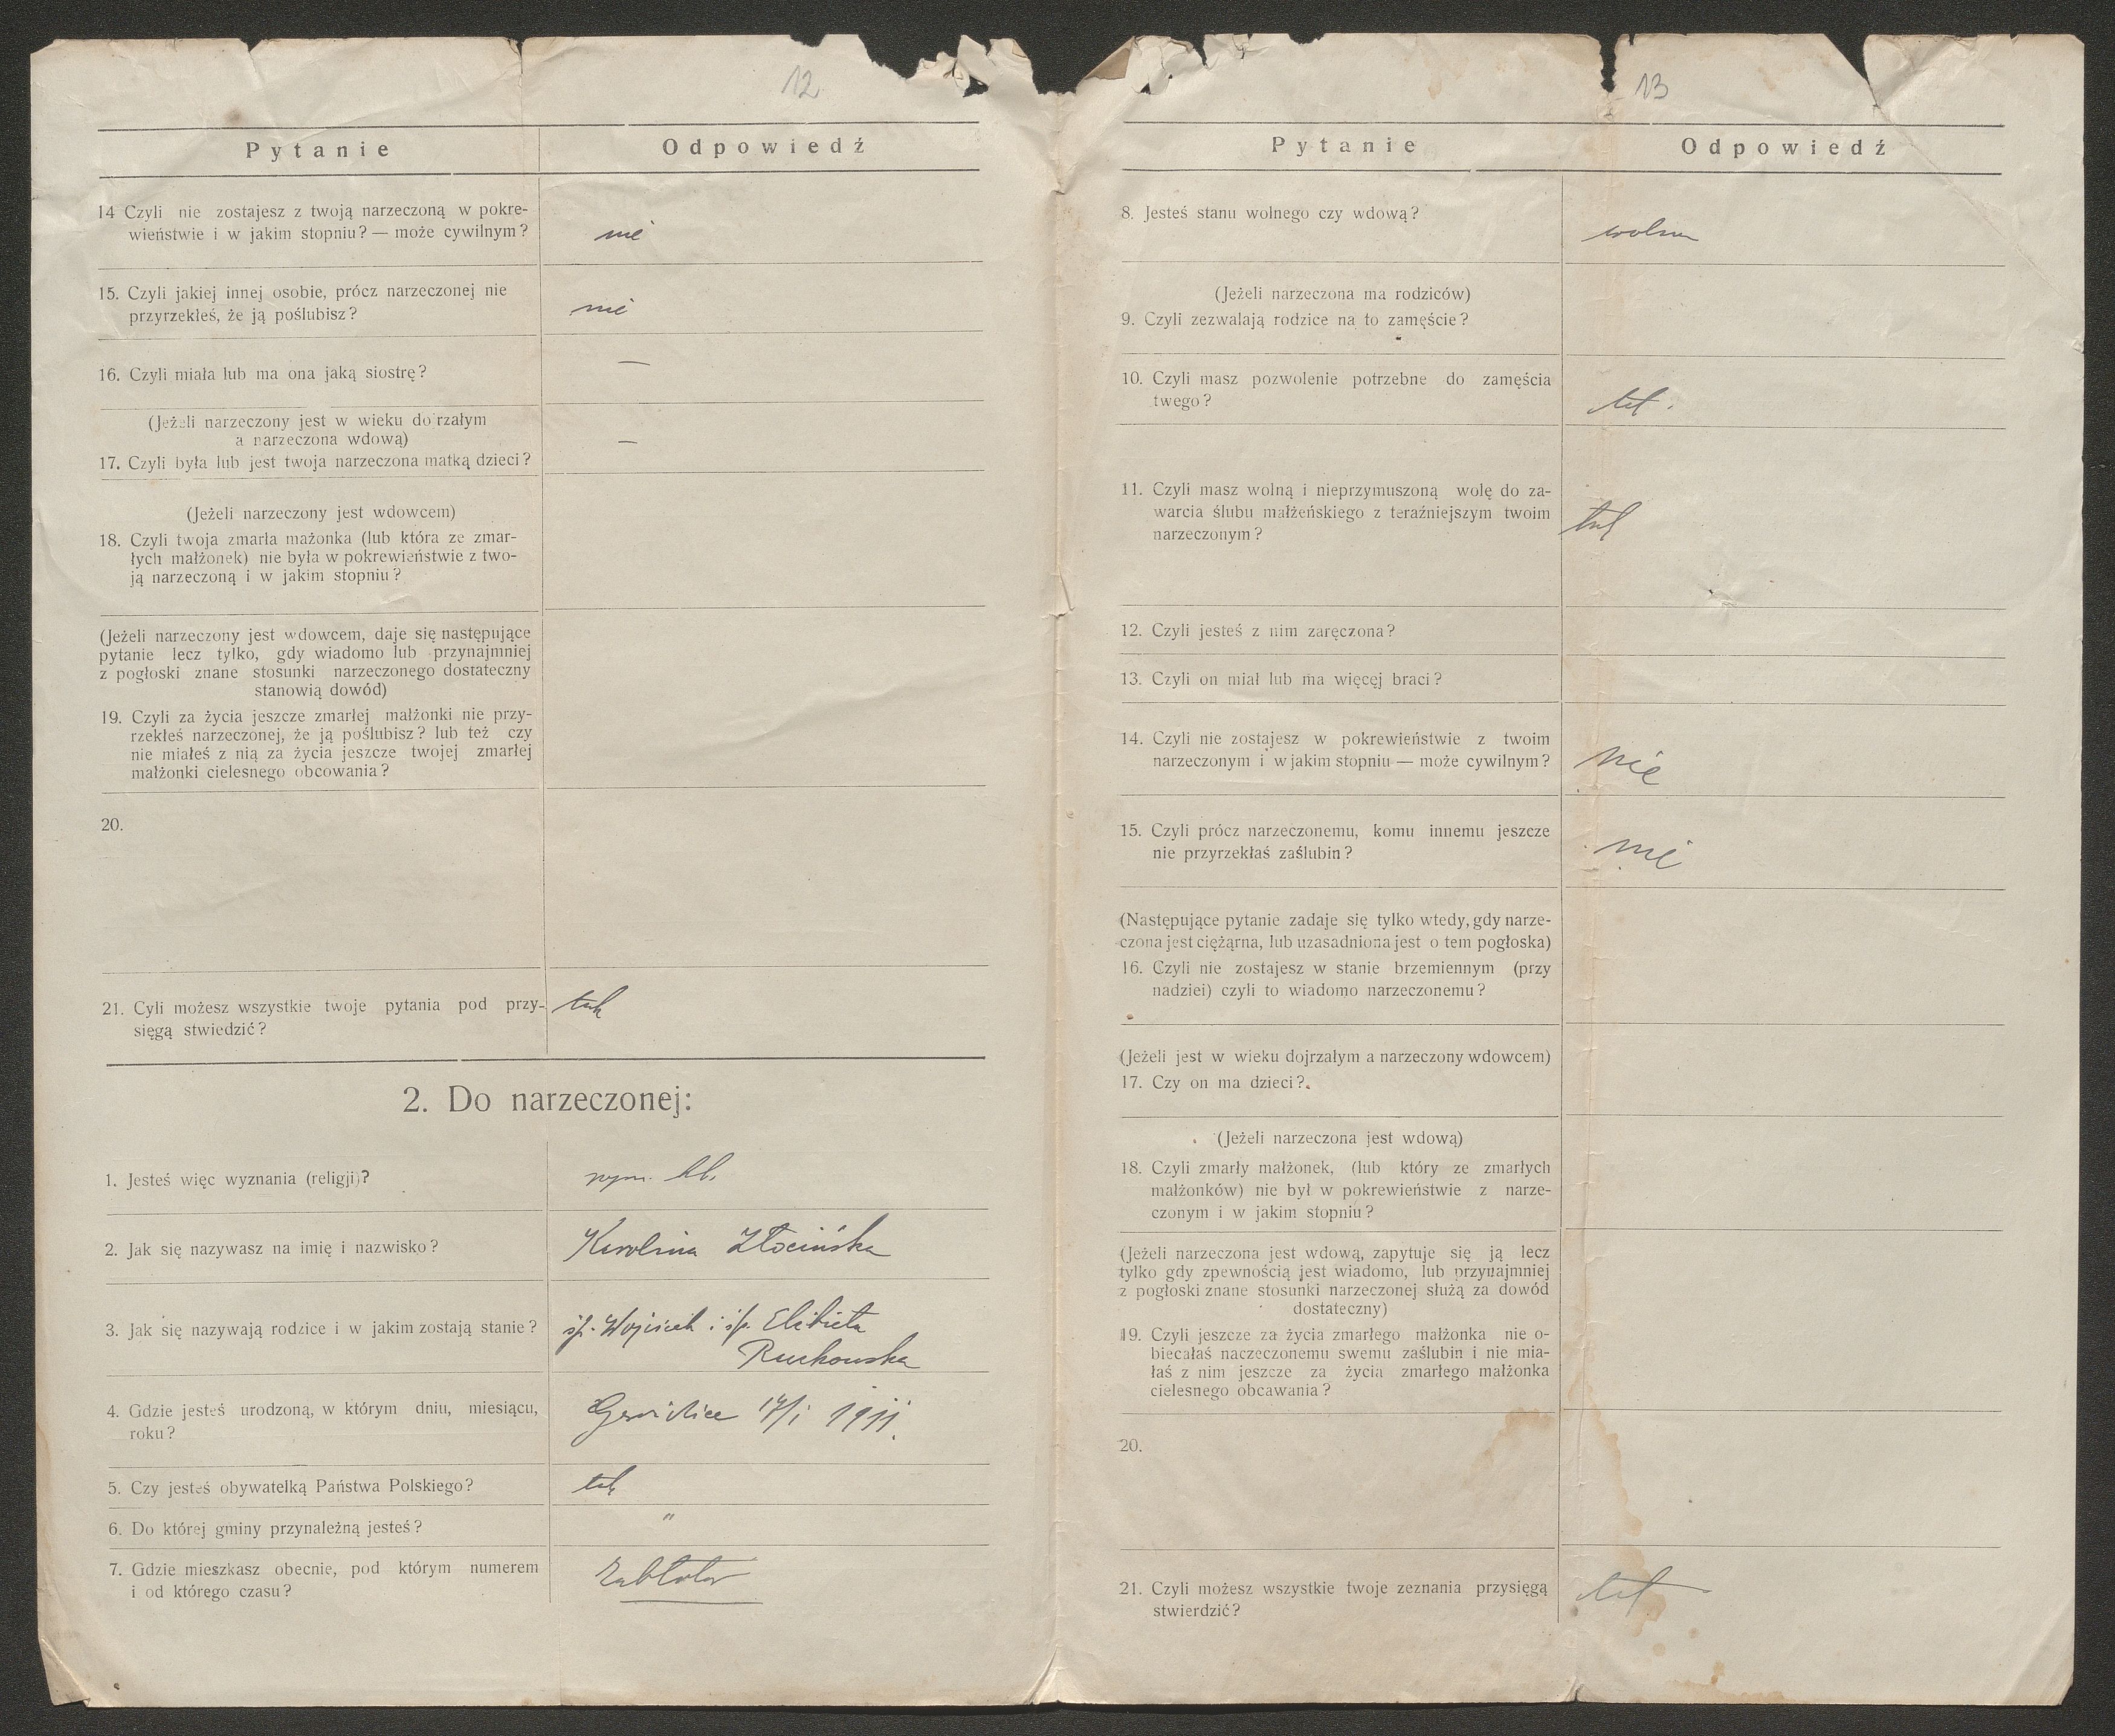 12
Pytanie
Odpowiedź
14 Czyli nie zostajesz z twoją narzeczoną w pokre-
wieństwie i w jakim stopniu? — może cywilnym?
nie
15. Czyli jakiej innej osobie, prócz narzeczonej nie
przyrzekłeś, że ją poślubisz?
nie
16. Czyli miała lub ma ona jaką siostrę?
—
(Jeżeli narzeczony jest w wieku do rzałym
a narzeczona wdową)
17. Czyli była lub jest twoja narzeczona matką dzieci?
—
(Jeżeli narzeczony jest wdowcem)
18. Czyli twoja zmarła mażonka (lub która ze zmar-
łych małżonek) nie była w pokrewieństwie z two-
ją narzeczoną i w jakim stopniu?
(Jeżeli narzeczony jest wdowcem, daje się następujące
pytanie lecz tylko, gdy wiadomo lub przynajmniej
z pogłoski znane stosunki narzeczonego dostateczny
stanowią dowód)
19. Czyli za życia jeszcze zmarłej małżonki nie przy-
rzekłeś narzeczonej, że ją poślubisz? lub też czy
nie miałeś z nią za życia jeszcze twojej zmarłej
małżonki cielesnego obcowania?
20.
21. Cyli możesz wszystkie twoje pytania pod przy-
sięgą stwiedzić?
tak
2. Do narzeczonej:
1. Jesteś więc wyznania (religji)?
rzym. kt.
2. Jak się nazywasz na imię i nazwisko?
Karolina Złocińska
3. Jak się nazywają rodzice i w jakim zostają stanie?
śp. Wojciech i śp. Elżbieta
Ruchowska
4. Gdzie jesteś urodzoną, w którym dniu, miesiącu,
roku?
17/I 1911.
5. Czy jesteś obywatelką Państwa Polskiego?
tak
6. Do której gminy przynależną jesteś?
"
7. Gdzie mieszkasz obecnie, pod którym numerem
i od którego czasu?
Zabłotów
13
Pytanie
Odpowiedź
8. Jesteś stanu wolnego czy wdową?
wolna
(Jeżeli narzeczona ma rodziców)
9. Czyli zezwalają rodzice na to zamęście?
10. Czyli masz pozwolenie potrzebne do zamęścia
twego?
tak.
11. Czyli masz wolną i nieprzymuszoną wolę do za-
warcia ślubu małżeńskiego z teraźniejszym twoim
narzeczonym?
tak
12. Czyli jesteś z nim zaręczona?
13. Czyli on miał lub ma więcęj braci?
14. Czyli nie zostajesz w pokrewieństwie z twoim
narzeczonym i w jakim stopniu — może cywilnym?
nie
15. Czyli prócz narzeczonemu, komu innemu jeszcze
nie przyrzekłaś zaślubin?
nie
(Następujące pytanie zadaje się tylko wtedy, gdy narze-
czona jest ciężąrna, lub uzasadniona jest o tem pogłoska)
16. Czyli nie zostajesz w stanie brzemiennym (przy
nadziei) czyli to wiadomo narzeczonemu?
(Jeżeli jest w wieku dojrzałym a narzeczony wdowcem)
17. Czy on ma dzieci?
(Jeżeli narzeczona jest wdową)
18. Czyli zmarły małżonek, (lub który ze zmarłych
małżonków) nie był w pokrewieństwie z narze-
czonym i w jakim stopniu?
(Jeżeli narzeczona jest wdową, zapytuje się ją lecz
tylko gdy zpewnością jest wiadomo, lub przynajmniej
z pogłoski znane stosunki narzeczonej służą za dowód
dostateczny)
19. Czyli jeszcze za życia zmarłego małżonka nie o-
biecałaś naczeczonemu swemu zaślubin i nie mia-
łaś z nim jeszcze za życia zmarłego małżonka
cielesnego obcawania?
20.
21. Czyli możesz wszystkie twoje zeznania przysięgą
stwierdzić?
tak